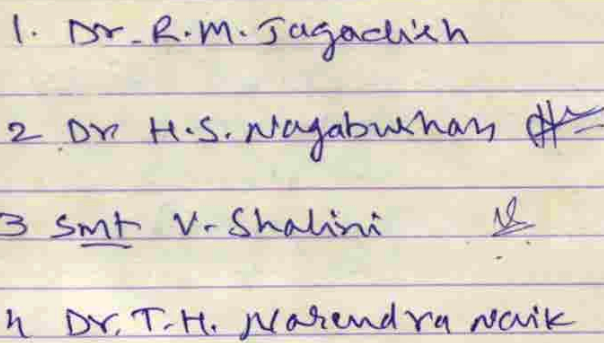 1. Dr. R.M. Jagadish
2 Dr H.S. Nagabushan
3 Smt V. Shalini
4 Dr. T.H. Narendra Naik